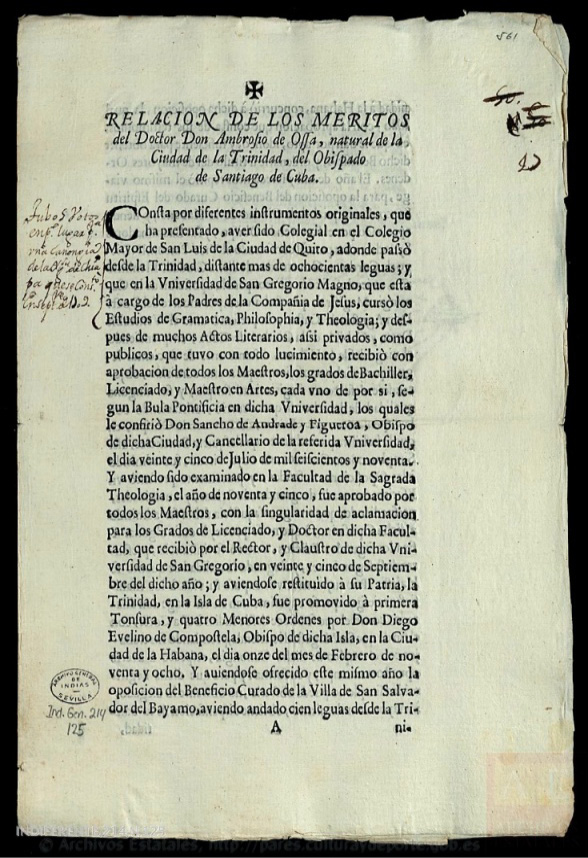 561
RELACION DE LOS MERITOS
del Doctor Don Ambrosio de Ossa, natural de la
Ciudad de la Trinidad, del Obispado
de Santiago de Cuba.
COnsta por diferentes instrumentos originales, que
ha presentado, aver sido Colegial en el Colegio
Mayor de San Luis de la Ciudad de Quito, adonde passò
desde la Trinidad, distante mas de ochocientas leguas; y
que en la Vniversidad de San Gregorio Magno, que esta
à cargo de los Padres de la Compañia de Jesus, cursò los
Estudios de Gramatica, Philosophia, y Theologia; y des-
pues de muchos Actos Literarios, assi privados, como
publicos, que tuvo con todo lucimiento, recibiò con
aprobacion de todos los Maestros, los grados de Bachiller,
Licenciado, y Maestro en Artes, cada vno de por si, se-
gun la Bula Pontificia en dicha Vniversidad, los quales
le confiriò Don Sancho de Andrade y Figueroa, Obispo
de dicha Ciudad, y Cancellario de la referida Vniversidad,
el dia veinte y cinco de Julio de mil seiscientos y noventa.
Y aviendo sido examinado en la Facultad de la Sagrada
Theologia, el año de noventa y cinco, fue aprobado por
todos los Maestros, con la singularidad de aclamacion
para los Grados de Licenciado, y Doctor en dicha Facul-
tad, que recibiò por el Rector, y Claustro de dicha Vni-
versidad de San Gregorio, en veinte y cinco de Septiem-
bre del dicho año; y aviendose restituido à su Patria, la
Trinidad, en la Isla de Cuba, fue promovido à primera
Tonsura, y quatro Menores Ordenes por Don Diego
Evelino de Compostela, Obispo de dicha Isla, en la Ciu-
dad de la Habana, el dia onze del mes de Febrero de no-
venta y ocho. Y auiendose ofrecido este mismo año la
oposicion del Beneficio Curado de la Villa de San Salva-
dor del Bayamo, aviendo andado cien leguas desde la Tri-
A
ni-
ARCHIVO GENERAL
DE
INDIAS
SEVILLA
Ind. Gen. 214
125
© Archivos Estatales, http://pares.culturaydeporte.gob.es